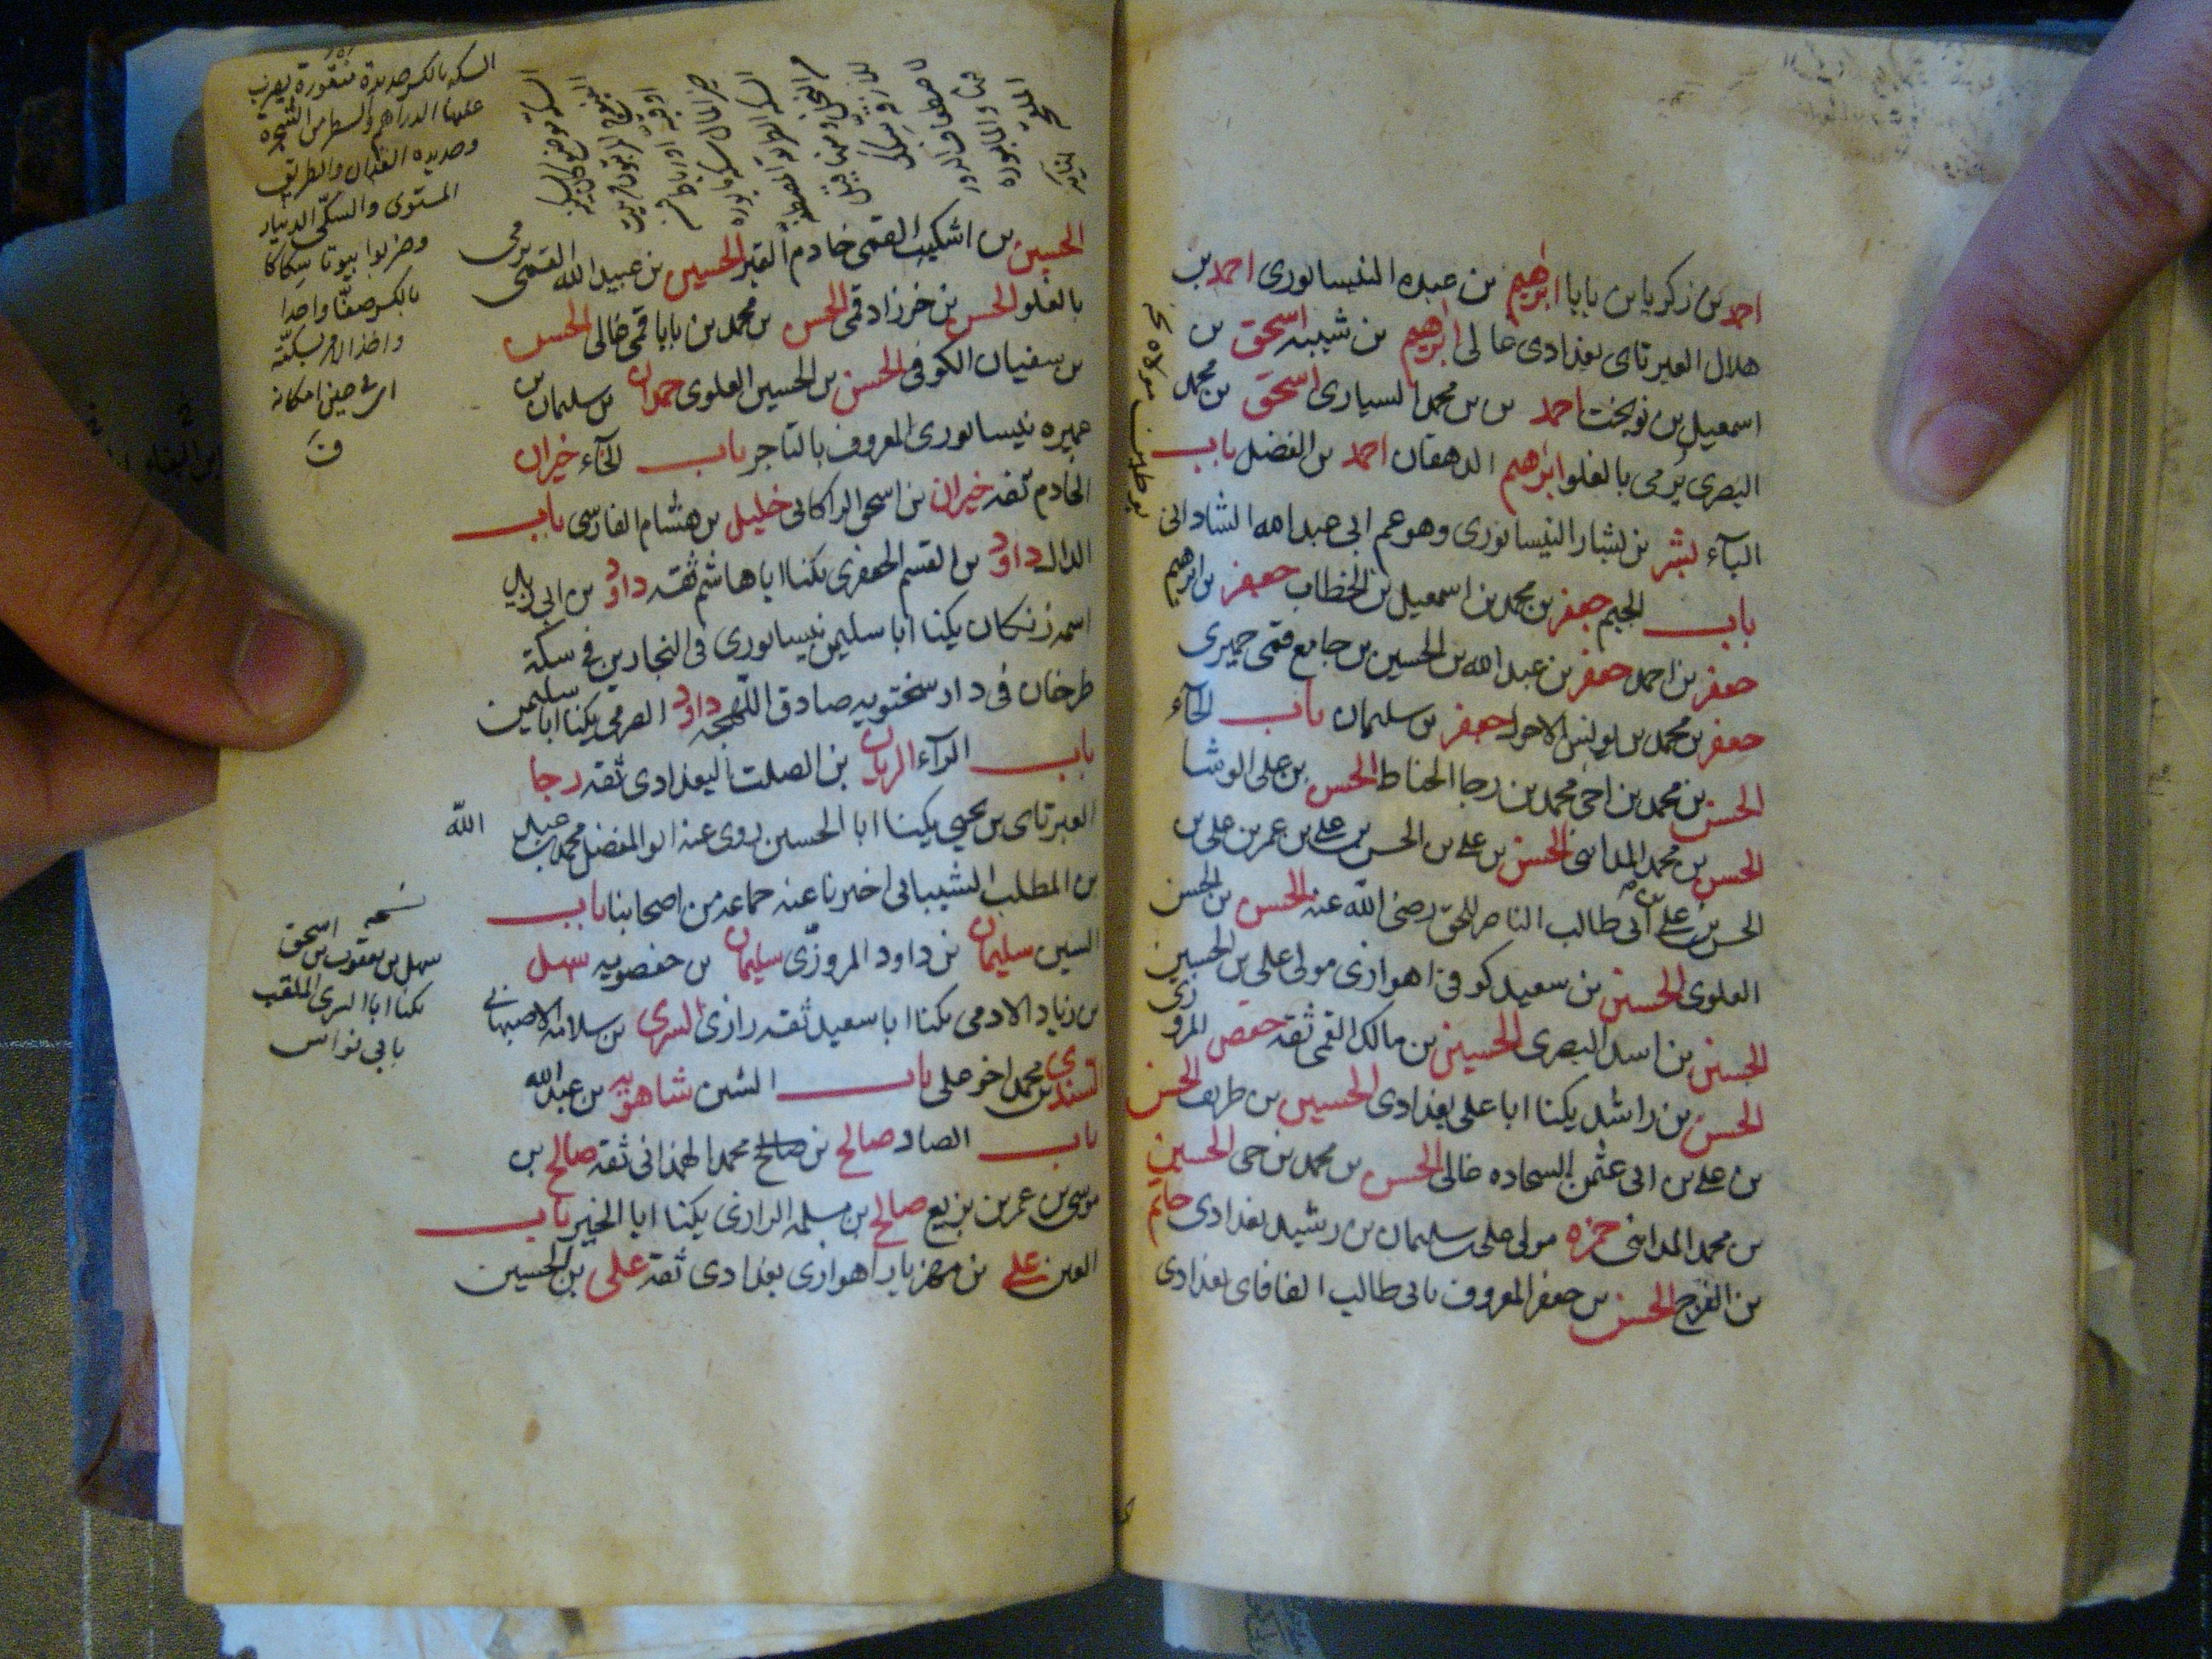 احمد بن زكريا بن بابا ابرهيم بن عبده النيسابورى احمد بن
هلال العبرتاى بغدادى غالى ابرهيم بن شيبه اسحق بن
اسمعيل بن نوبخت احمد بن محمد السيارى اسحق بن محمد
البصرى يرمى بالغلو ابرهيم الدهقان احمد بن الفضل باب
البآء بشر بن بشار النيسابورى وهو عم ابى عبد الله الشاذانى
باب الجيم جعفر بن محمد بن اسمعيل بن الخطاب جعفر بن ابرهيم
جعفر بن احمد جعفر بن عبد الله بن الحسين بن جامع قمى حميرى
جعفر بن محمد بن يونس الاحول جعفر بن سليمان باب الحآء
الحسن بن محمد بن اخى محمد بن رجا الحناط الحسن بن على الوشا
الحسن بن محمد المداينى الحسن بن على بن الحسن بن على بن عمر بن على بن
الحسن بن على بن ابى طالب الناصر للحق رضى الله عنه الحسن بن الحسن
العلوى الحسين بن سعيد كوفى اهوازى مولى على بن الحسين
الحسين بن اسد البصرى الحسين بن مالك القمى ثقه حفص المروزى
الحسن بن راشد يكنا ابا على بغدادى الحسين بن ظريف الحسن
بن على بن ابى عثمن السجاده غالى الحسن بن محمد بن حى الحسين
بن محمد المداينى حمزه مولى على بن سليمان بن رشيد بغدادى حاتم
بن الفرج الحسن بن جعفر المعروف بابى طالب الفافاى بغدادى
الحسين بن اشكيب القمى خادم القبر الحسين بن عبيد الله القمى يرمى
بالغلو الحسن بن خرزاد قمى الحسن بن محمد بن بابا قمى غالى الحسن
بن سفيان الكوفى الحسن بن الحسين العلوى حمدان بن سليمان بن
عميره نيسابورى المعروف بالتاجر باب الخآء خيران
الخادم ثقه خيران بن اسحق الزاكانى خليل بن هشام الفارسى باب
الدال داود بن القسم الجعفرى يكنا ابا هاشم ثقه داود بن ابى زيد
اسمه زنكان يكنا ابا سليمن نيسابورى فى النجارين فى سكة
طرخان فى دار سختويه صادق اللهجه داود الصرمى يكنا ابا سليمن
باب الرآء الريان بن الصلت البغدادى ثقه رجا
العبرتاى بن يحيى يكنا ابا الحسين روى عنه ابو المفضل محمد بن عبد الله
بن المطلب الشيبانى اخبرنا عنه جماعه من اصحابنا باب
السين سليمان بن داود المروزى سليمان بن حفصويه سهل
بن زياد الادمى يكنا ابا سعيد ثقه رازى السرى بن سلامه الاصبهانى
السندى بن محمد اخو على باب الشين شاهويه بن عبد الله
باب الصاد صالح بن صالح محمد الهمذانى ثقه صالح بن
موسى بن عمر بن بزيع صالح بن مسلمه الرازى يكنا ابا الخير باب
العين على بن مهزيار اهوازى بغدادى ثقه على بن الحسين
السكه بالكسر حديدة منقورة يضرب
عليها الدراهم والسطر من الشجرة
وحديده الفدان والطريق
المستوى والسكّى الدينار
وضربوا بيوتا سكاكا
بالكسر صفّا واحدا
واخذ الامر بسكّته
اى فى حين امكانه
ق
نسخه
سهل بن يعقوب بن اسحق
يكنا ابا السرى الملقب
بابى نواس